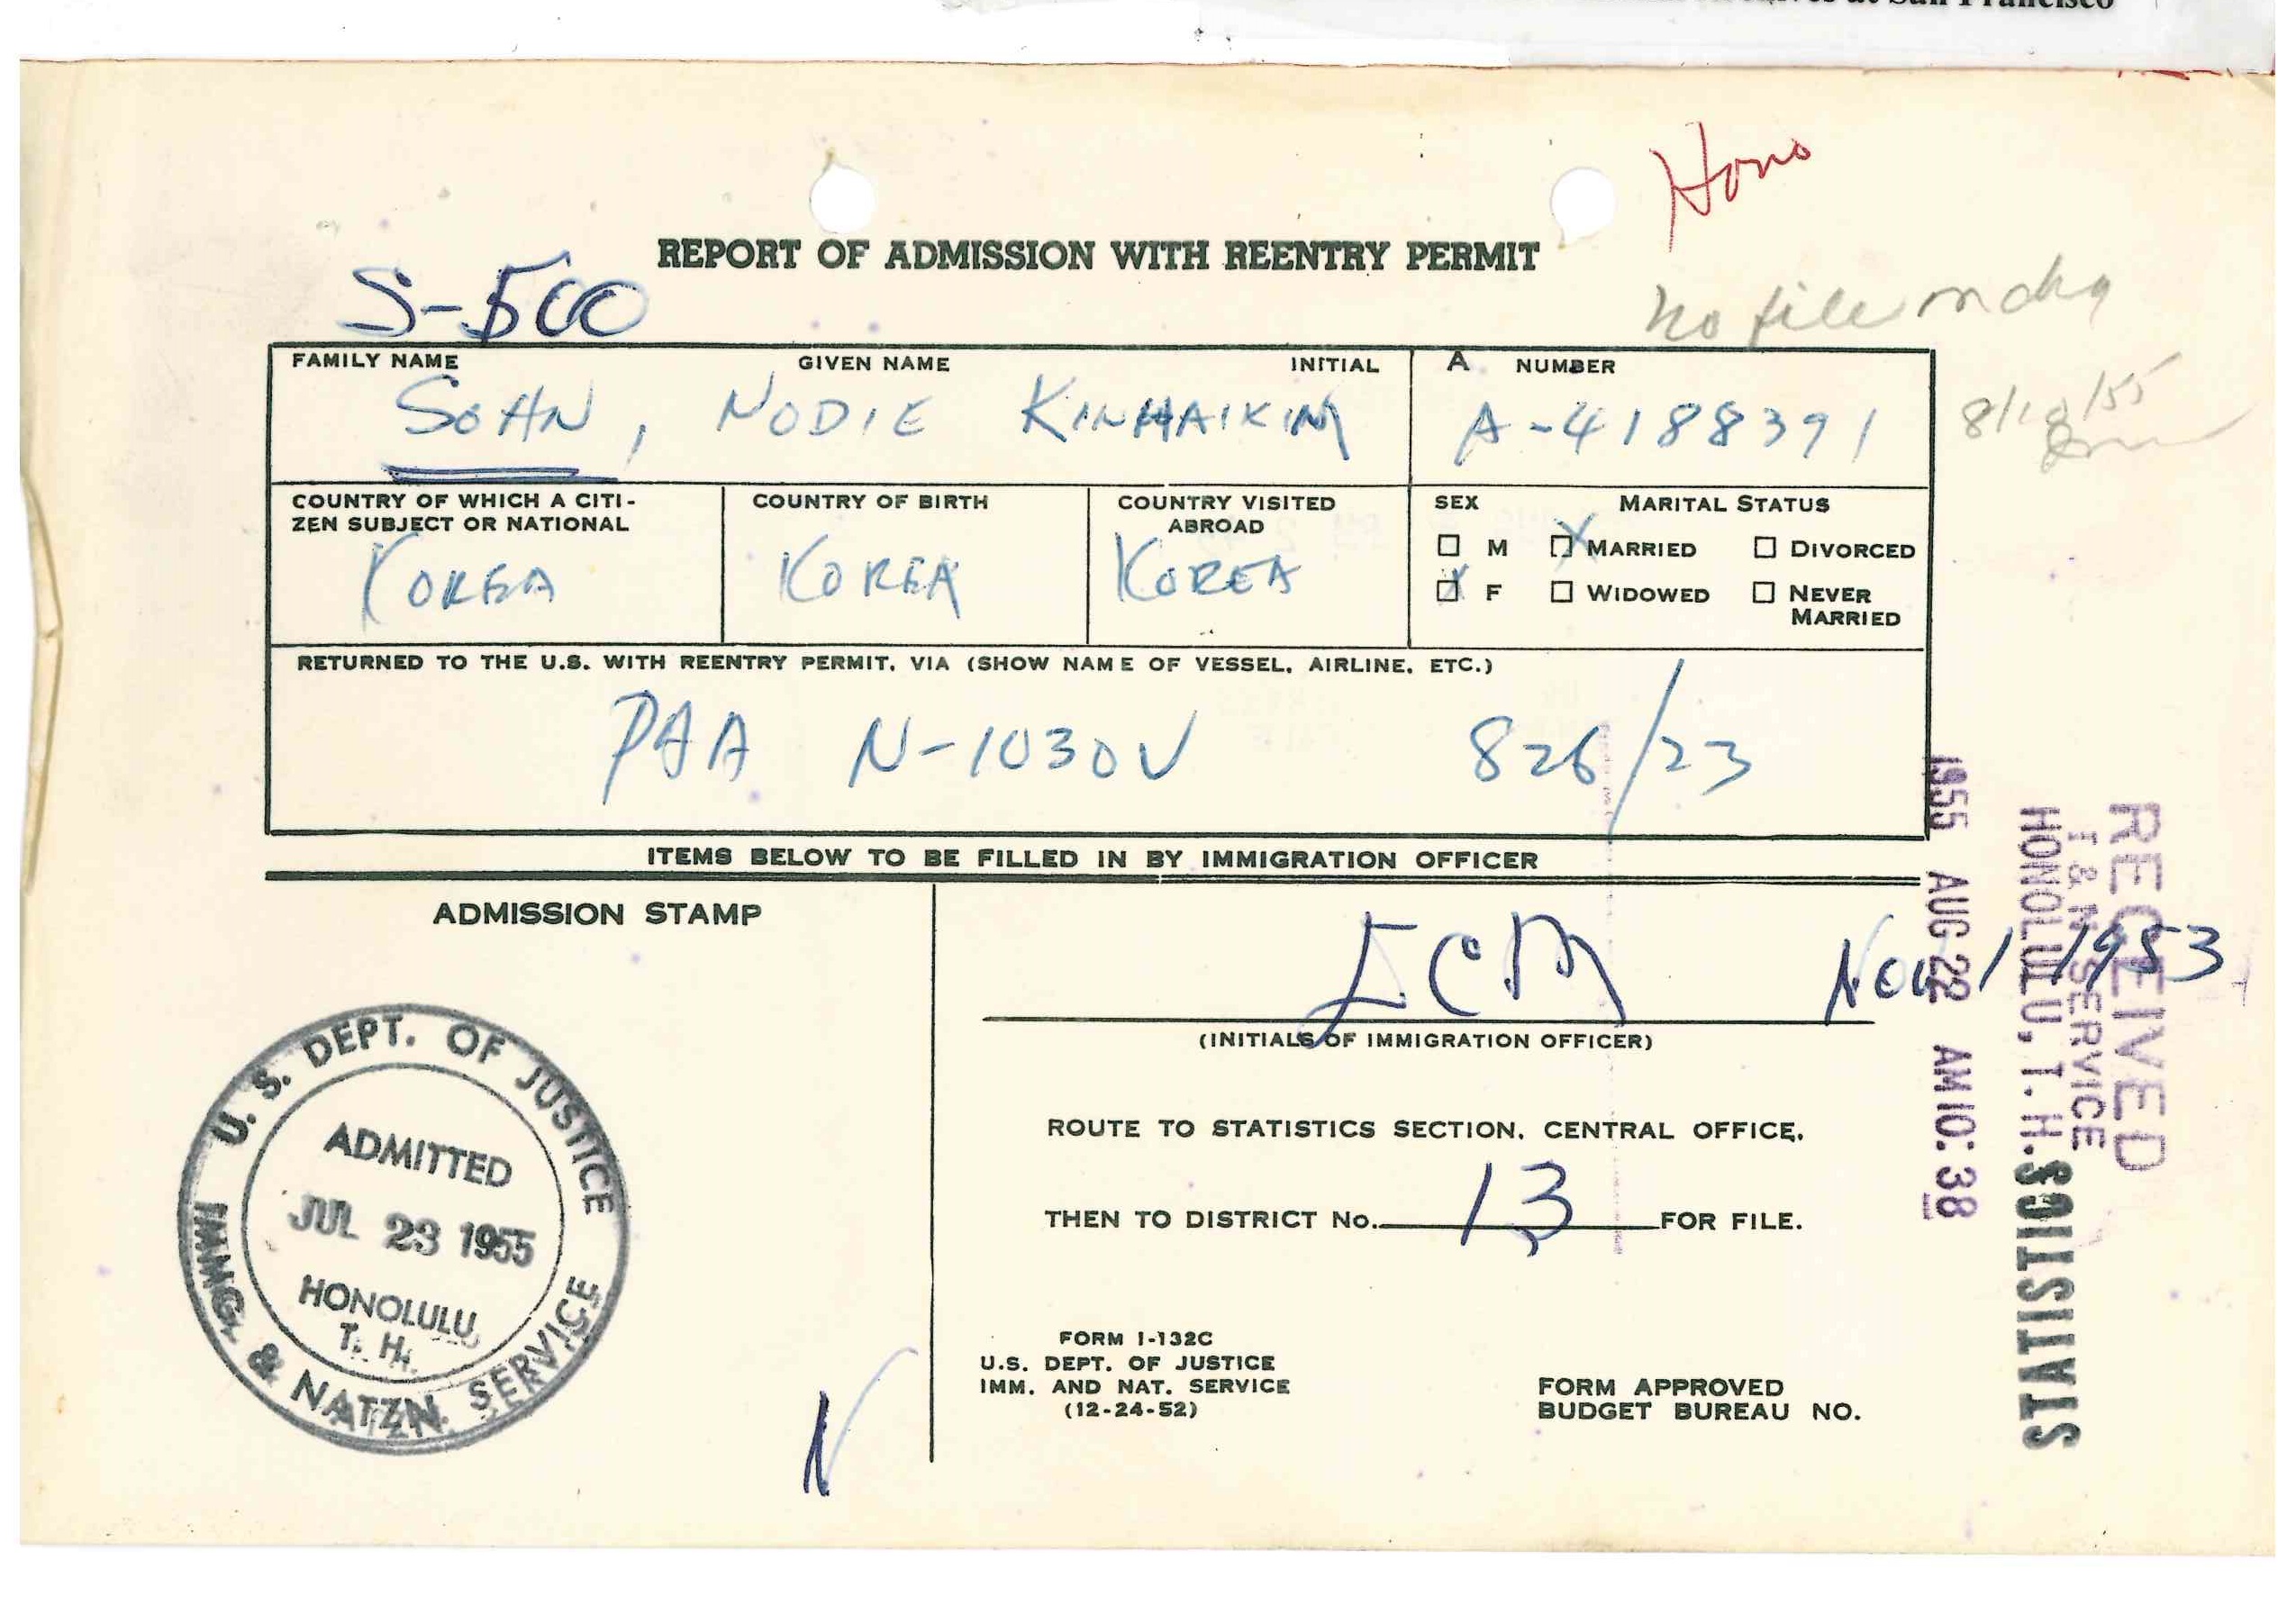 at San Francisco
Hono
REPORT OF ADMISSION WITH REENTRY PERMIT
S-500
No file
FAMILY NAME GIVEN NAME INITIAL A NUMBER
SOHN, NODIE KINHAIKIM A-4188391
8/18/55
COUNTRY OF WHICH A CITI-
ZEN SUBJECT OR NATIONAL
KOREA
COUNTRY OF BIRTH
KOREA
COUNTRY VISITED
ABROAD
KOREA
SEX MARITAL STATUS
☐ M ☒ MARRIED ☐ DIVORCED
☒ F ☐ WIDOWED ☐ NEVER
MARRIED
RETURNED TO THE U.S. WITH REENTRY PERMIT, VIA (SHOW NAME OF VESSEL, AIRLINE, ETC.)
PAA N-1030V 826/23
ITEMS BELOW TO BE FILLED IN BY IMMIGRATION OFFICER
ADMISSION STAMP
U. S. DEPT. OF JUSTICE
ADMITTED
JUL 23 1955
HONOLULU
T. H.
IMMG. & NATZN. SERVICE
N
ECM Nov 1 1953
(INITIALS OF IMMIGRATION OFFICER)
ROUTE TO STATISTICS SECTION, CENTRAL OFFICE,
THEN TO DISTRICT No. 13 FOR FILE.
FORM I-132C
U.S. DEPT. OF JUSTICE
IMM. AND NAT. SERVICE
(12-24-52)
FORM APPROVED
BUDGET BUREAU NO.
RECEIVED
I & N SERVICE
HONOLULU, T. H.
1955 AUG 22 AM 10:38
STATISTICS